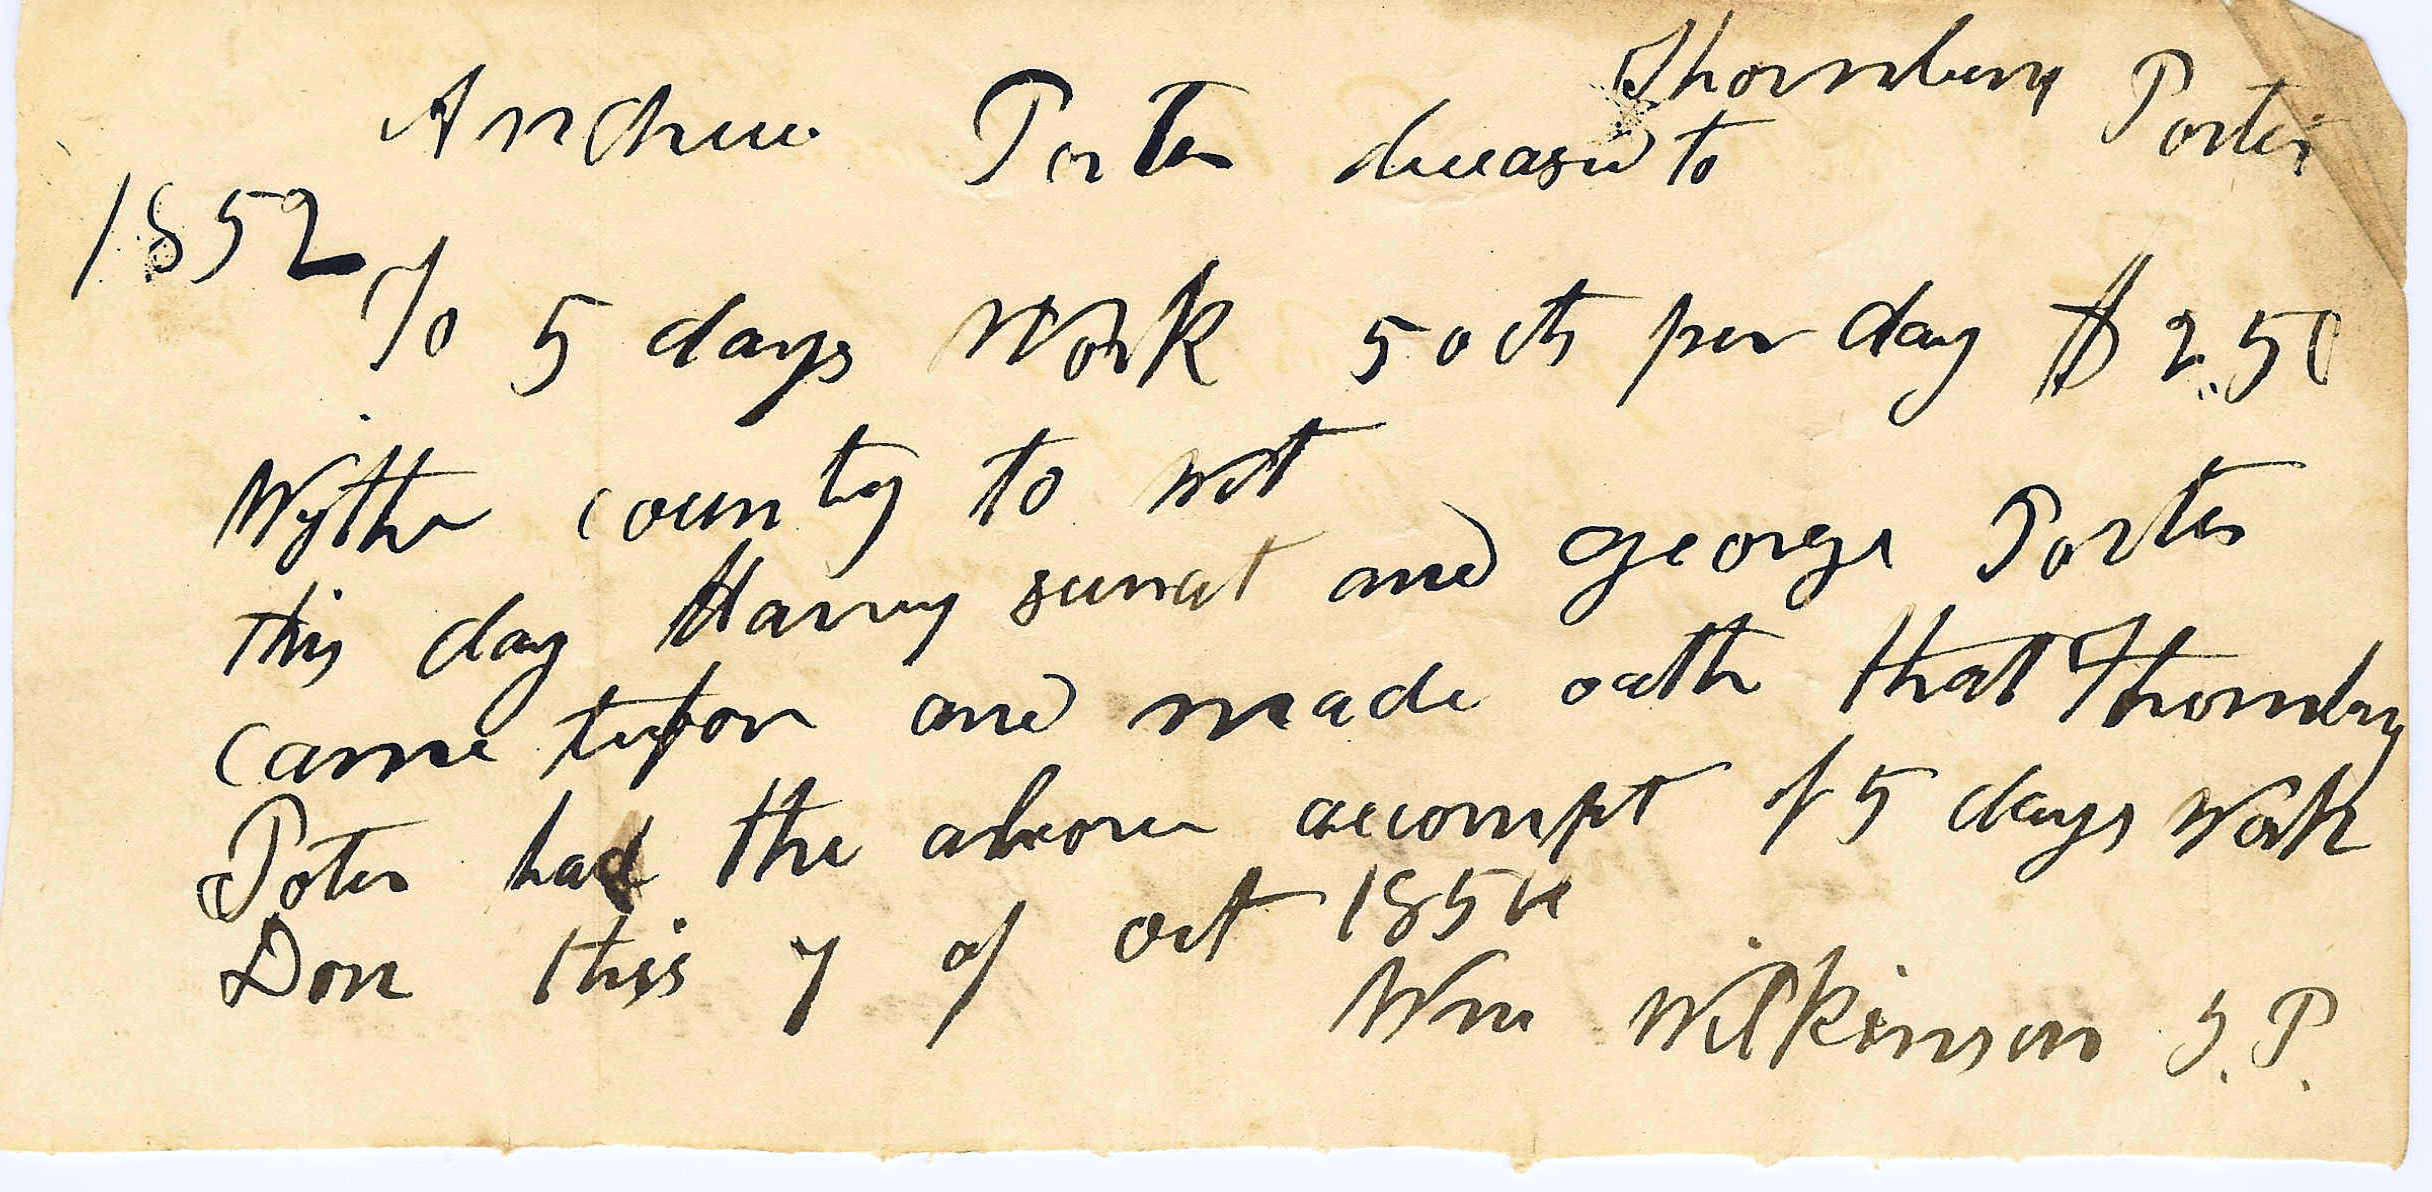 Andrew Porter deceasd to Thornbery Porter
1852
To 5 days Work 50 cts per day $2.50
Wythe county to wit
this day Harvy and george Porter
came and made oath that Thornbry
Poter had the above accompt of 5 days Work
Don this 7 of oct 1854
Wm Wilkinson J.P.